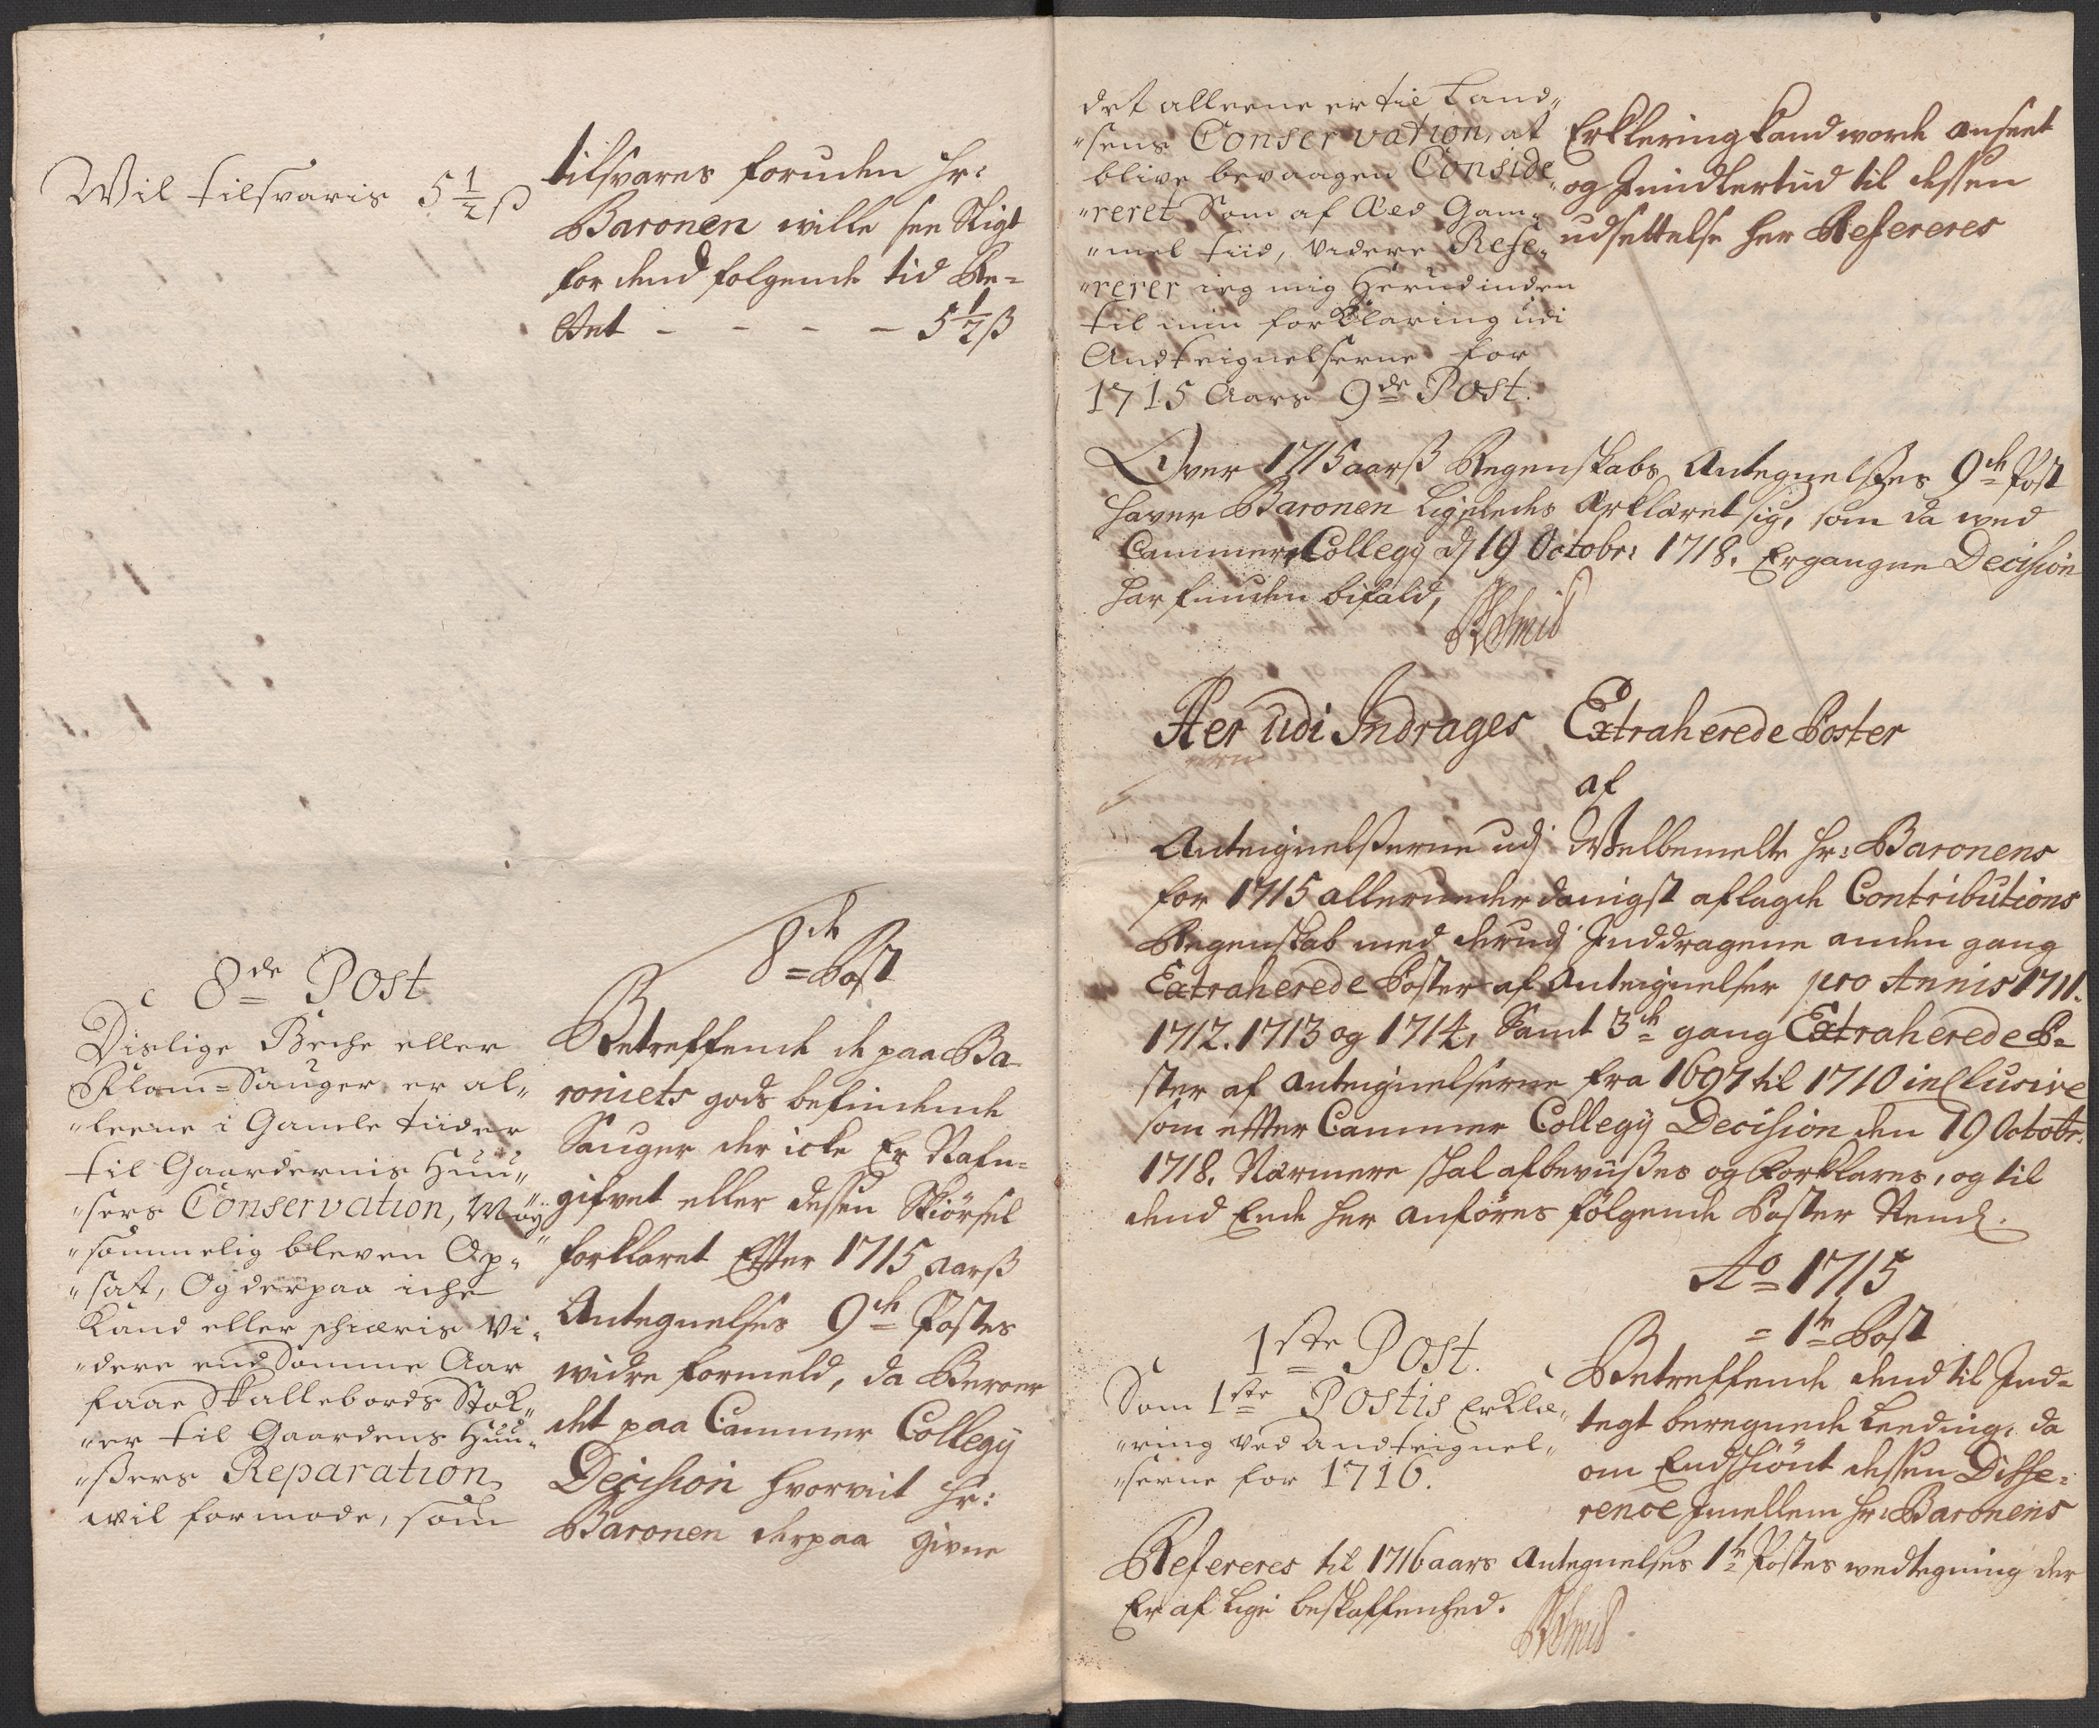 Wil tilsvaris 5 1/2 ß
tilsvares foruden Hr:
Baronen wille see Rigt
for dend folgende tid Be-
- - - - 5 1/2 ß
8de Post
Dislige Beche eller
Flom-Sauger er al-
"leene i Gamle tiider
til Gaardernis Huu-
"sers Conservation,
"sommelig bleven Op-
"sat, Og derpaa iche
Kand eller schiæris Vi-
"dere end Somme Aar
faae Skallebords Stok-
"er til Gaardens Huu-
"ßers Reparation
wil formode, som
8de Post
Betreffende de paa Ba-
roniets gods befindende
Sauger der icke Er Nafn-
gifvet eller dessen Skiørsel
forklaret Efter 1715 aarß
Antegnelses 9de Postes
widre formeld, da Beroer
det paa Cammer Collegij
Decision hvorvit Hr:
Baronen derpaa givne
det alleene er til Land-
"sens Conservation, at
blive bevaagen Conside-
"reret Som af Æld Gam-
"mel tiid, videre Refe-
"rerer ieg mig Herudinden
til min forklaring udi
Andteignelserne for
1715 Aars 9de Post.
Erklering kand worde anseet
og Imidlertiid til dessen
udsettelse her Refereres
Over 1715 aarß Regenskabs Antegnelses 9de Post
haver Baronen Ligeledes Erklæret sig, som da wed
Cammer Collegij dj 19 Octobr: 1718. Ergangne Decision
har funden bifald,
Her udi Indrages Extraherede Poster
af
Anteignelßerne udj Welbemelte Hr: Baronens
for 1715 allerunderdanigst aflagde Contributions
Regenskab med derudj Inddragene anden gang
Extraherede Poster af Anteignelser pro Annis 1711.
1712. 1713 og 1714, Samt 3de gang Extraherede Po-
ster af anteignelserne fra 1697 til 1710 inclusive
som efter Cammer Collegij Decision den 19 Octobr:
1718. Narmere skal afbeviißes og Forklares, og til
dend Ende her anføres følgende Poster Neml.
Ao 1715
1ste Post.
Som 1ste Postis Erklæ-
"ring ved Andteignel-
"serne for 1716.
1te Post
Betreffende dend til Ind-
tegt beregnede Leeding, da
om Endschiønt dessen Diffe-
rence Imellem Hr: Baronens
Refereres til 1716 aars Antegnelses 1te Postes wedtegning der
Er af Lige beskaffenhed.